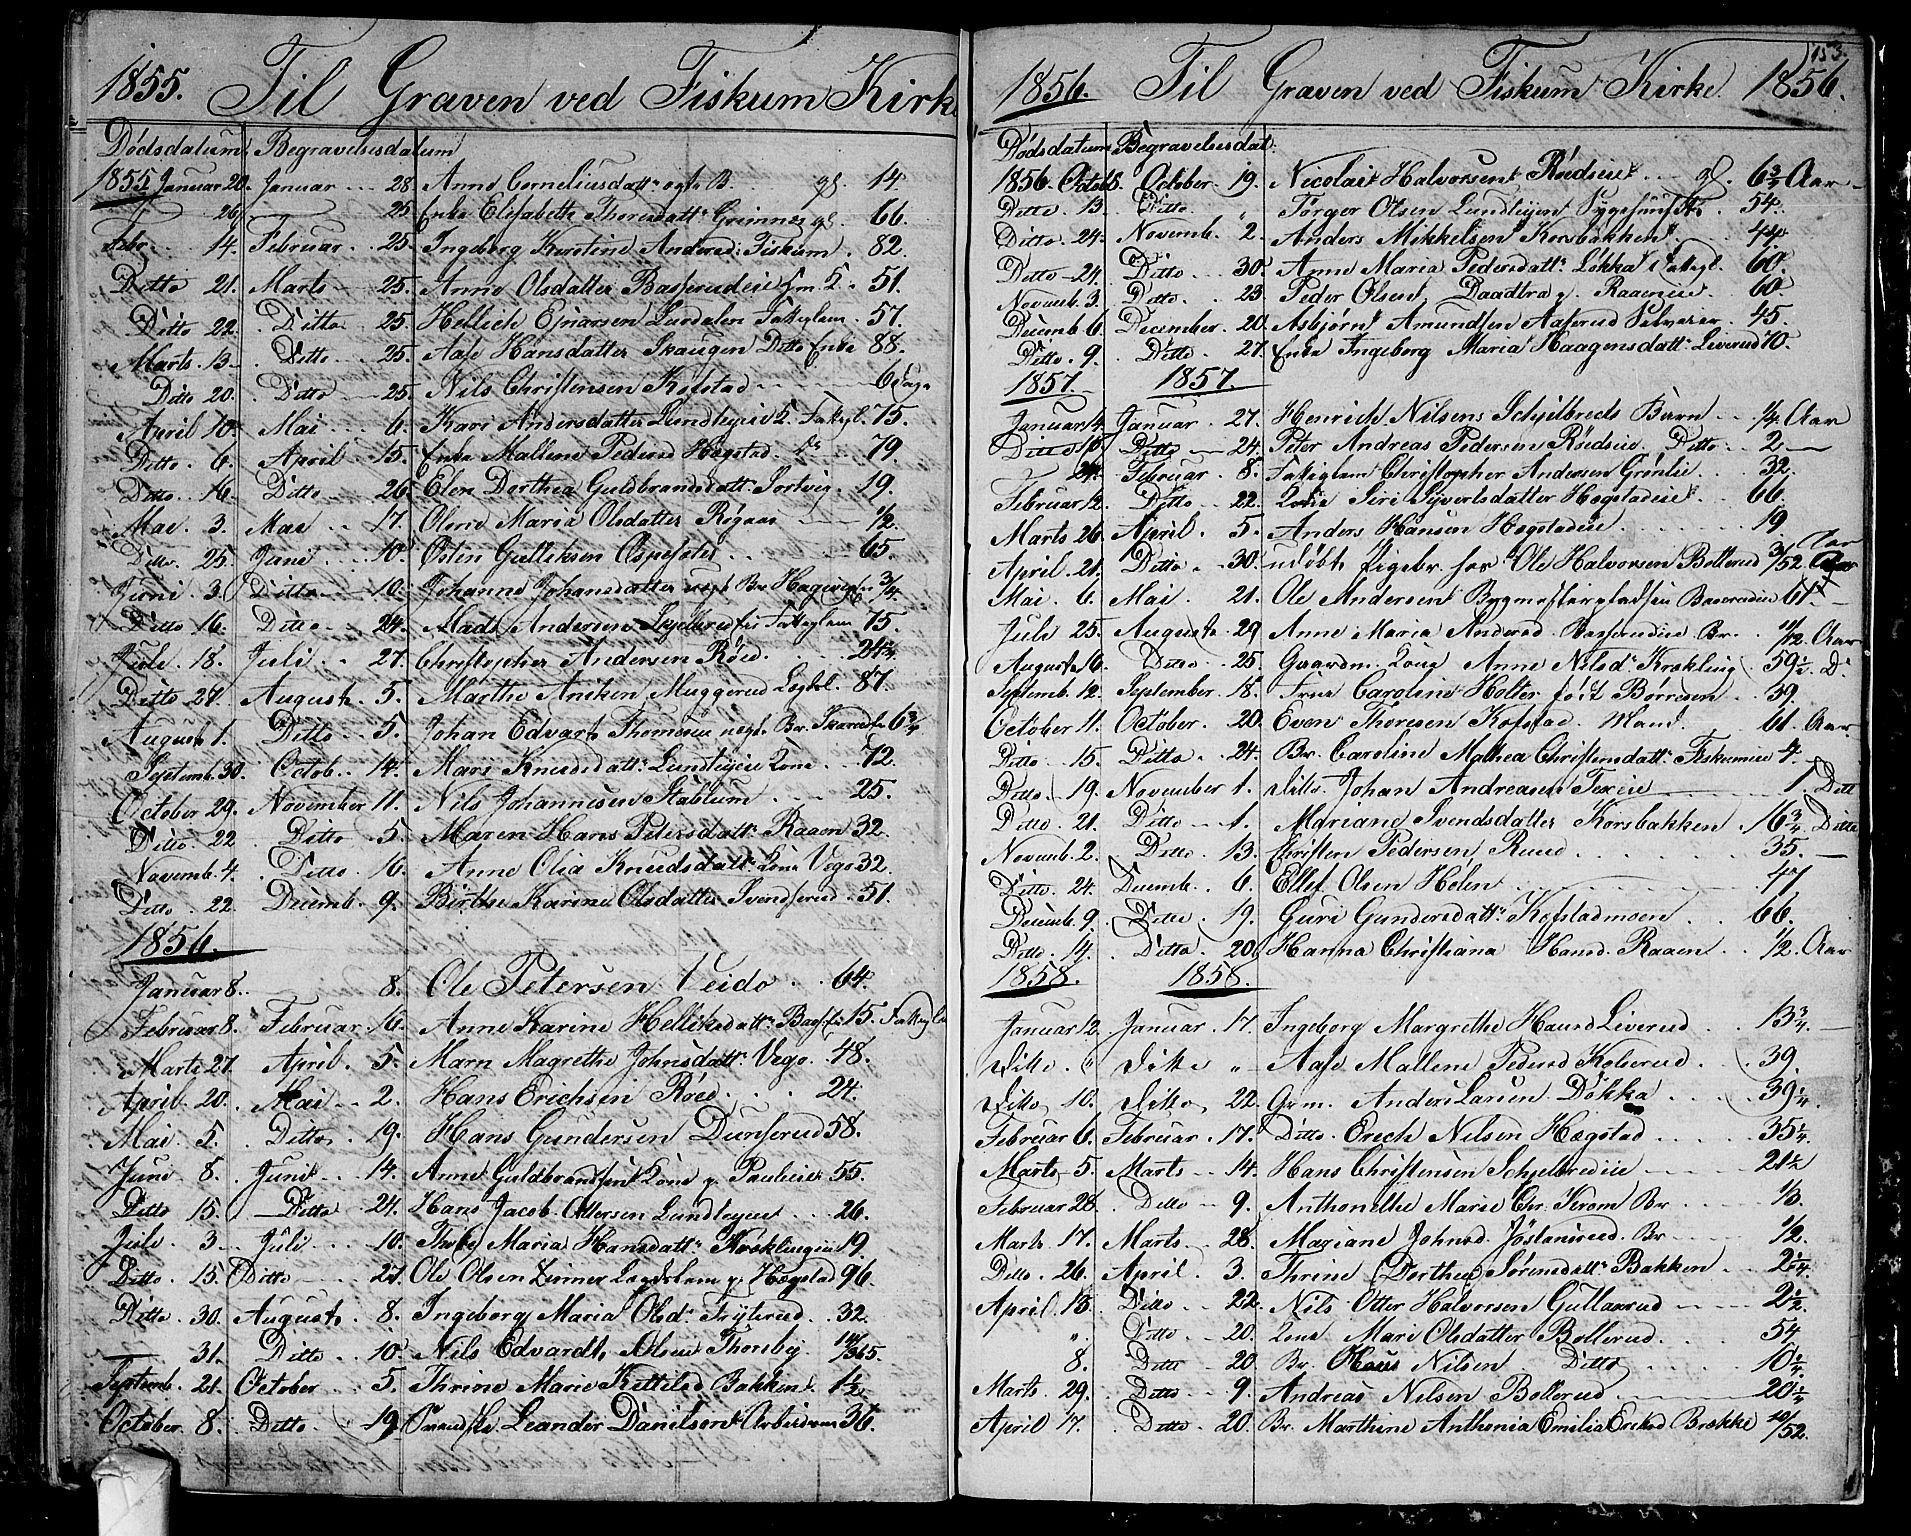 1855. Til Graven ved Fiskum Kirke
Dødsdatum Begravelsesdatum
1855 Januar 20. Januar 28 Anne Corneliusdattr ægte B. gl. 14
26 25 Enke Elisabeth Thoresdattr Grinnes gl. 66.
Febr. 14. Februar 25. Ingeborg Kirstine Andersd: Fiskum 82.
Ditto 21. Marts 25. Anne Olsdatter Basserudeie 51.
Ditto 22. Ditto 25. Hellich Ejnarsen Lurdalen Fattiglem 57.
Marts 13 Ditto 25. Aase Hansdatter Skaugen Ditto Enke 88.
Ditto 20. Ditto 25. Nils Christensen Kofstad 6 Dage
April 10. Mai 6. Kari Andersdatter Lundteigeie Fattigl. 75.
Ditto 6. April 15. Enke Mallene Pedersd Hægstad 79
Ditto 16. Ditto 26. Elen Dorthea Guldbrandsdattr Sortvig 19.
Mai 3. Mai 17. Olene Maria Olsdatter Røgaas 1/2.
Ditto 25. Juni 10. Østen Gulliksen Aspestad 65.
Juni 3. Ditto 10. Johanne Johansdatter Br 3/4
Ditto 16. Ditto 24. Mads Andersen Fattiglem 75.
Juli 18. Juli 27. Christopher Andersen Røed 24 1/4
Ditto 27. August 5. Marthe Aniken Muggerud Lægdsl. 87.
August 1. Ditto 5. Johan Edvart Thomesen Br. 6 3/4
Septemb. 30. Octob. 14. Mari Knudsdattr Lundteigeie Kone 72.
October 29. November 11. Nils Johannesen Stablum 25.
Ditto 22 Ditto 5. Maren Hans Petersdattr Raaen 32.
Novemb. 4. Ditto 16. Anne Olia Knudsdattr Kone Vego 32.
Ditto 22. Decemb. 9. Birthe Karine Olsdatter Svendserud 51.
1856.
Januar 8. 8. Ole Petersen Veido 64.
Februar 8. Februar 16. Anne Karine Helliksdattr 15. Fattigl
Marts 27. April 5. Marn Magrethe Johnsdattr Vego 48.
April 20. Mai 2. Hans Erichsen Røed 24.
Mai 5. Ditto 19. Hans Gundersen Dunserud 58.
Juni 8. Juni 14. Anne Guldbrandsen Kone p. Pauleie 55.
Ditto 15. Ditto 24. Hans Jacob Ottersen Lundteigen 26.
Juli 3. Juli 10. Maria Hansdattr Krøklingeie 19.
Ditto 15. Ditto 27. Ole Olsen Lægdslem p. Hægstad 96.
Ditto 30. August 8. Ingeborg Maria Olsd: Frøterud 32.
31. Ditto 10. Nils Edvardt Olsen Thorsby /365.
Septemb. 21. October 5. Thrine Marie Kittilsd Bakken 1 1/2
October 8. Ditto 19. Leander Danielsen Arbeidsm 36.
153.
1856. Til Graven ved Fiskum Kirke. 1856.
Dødsdatum Begravelsesdat:
1856. Octob 8. October 19. Nicolai Halvorsen Røedseie gl. 6 3/4 Aar
Ditto 13. Ditto " Torger Olsen Lundteigen 54.
Ditto 24. Novemb. 2. Anders Mikkelsen Korsbakken 44
Ditto 24. Ditto 30. Anne Maria Pedersdattr Løkka Fattigl. 60.
Novemb. 3. Ditto 23 Peder Olsen Daadbra p. Raaeneie 60
Decemb 6. December 20. Asbjørn Amundsen Aaserud Selveier 45.
Ditto 9. Ditto 27. Enke Ingeborg Maria Haagensdattr Liverud 70.
1857. 1857.
Januar 14. Januar 27. Henrich Nilsens Schjelbreds Barn 1/4 Aar
Ditto 10 Ditto 24. Peter Andreas Pedersen Røedseie Ditto 2
24. Februar 8. Fattiglem Christopher Andersen Grønlie 32.
Februar 12. Ditto 22. Kone Siri Syvertsdatter Hægstadeie 66.
Marts 26. April 5. Anders Hansen Hægstadeie 19
April 21. Ditto 30. udøbt Pigebr. for Ole Halvorsen Bollerud 3/52 Aar
Mai 6. Mai 21. Ole Andersen Bygmester Basserudeie 61
Juli 25. August 29 Anne Maria Andersd Basserudeie Br. 11/12 Aar
August 16. Ditto 25. Gaardm. Kone Anne Nilsdr Krøkling 59 1/2 D:
Septemb. 12. September 18. Frue Caroline Holter født Børresen 39.
October 11. October 20. Even Thoresen Kofstad Mand 61. Aar
Ditto 15. Ditto 24. Br. Caroline Mathea Christensdattr Fiskumeie 4.
Ditto 19. November 1. Ditto Johan Andreasen Teeie 1. Ditt
Ditto 21. Ditto 1. Mariane Svendsdatter Korsbakken 16 3/4 Ditto
Novemb. 2. Ditto 13. Christen Pedersen Ruud 35.
Ditto 24. Decemb. 6. Ellef Olsen Holen 47
Decemb. 9. Ditto 19. Guri Gundersdattr Kofstadmoen 66.
Ditto 14. Ditto 20. Hanna Christiana Hansd. Raaen 1/2. Aar
1858. 1858.
Januar 12. Januar 17. Ingeborg Margrethe Hansd Liverud 13 3/4
Ditto " Ditto " Aase Mallene Pedersd Kolserud 39.
Ditto 10. Ditto 22. Grm. Anders Larsen Dokka 39 1/4.
Februar 6. Februar 17. Ditto Erich Nilsen Hægstad 35 1/4.
Marts 5. Marts 14. Hans Christensen Schjelbredeie 21 1/2
Februar 28. Ditto 9. Anthonethe Marie Chr. Krom Br 1/3.
Marts 17. Marts 28. Mariane Johnsd. Jøslandrud Br 1/2.
Ditto 26. April 3. Thrine Dorthea Sørensdattr Bakken 2 1/4.
April 13. Ditto 22. Nils Otter Halvorsen Gullaarud 2 1/2.
" Ditto 20. Kone Mari Olsdatter Bollerud 54.
8. Ditto 20. Br. Hans Nilsen Ditto 10 1/2
Marts 29. Ditto 9. Andreas Nilsen Bollerud 20 1/2
April 17. Ditto 20. Br. Marthine Anthonia Emilia Ericksd Brekke 10/52.